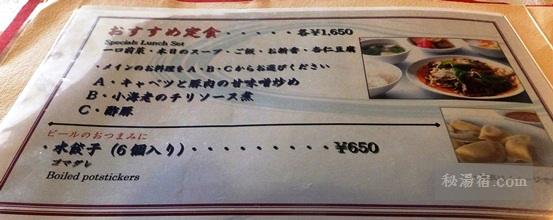 おすすめ定食・・・・・各¥1,650
Specials Lunch Set
一口前菜・本日のスープ・ご飯・お新香・杏仁豆腐
・メインのお料理をA・B・Cからお選びください
A・キャベツと豚肉の甘味噌炒め
B・小海老のチリソース煮
C・酢豚
ビールのおつまみに
・水餃子（6個入り）・・・・・・・・・¥650
ゴマダレ
Boiled potstickers
秘湯宿.com